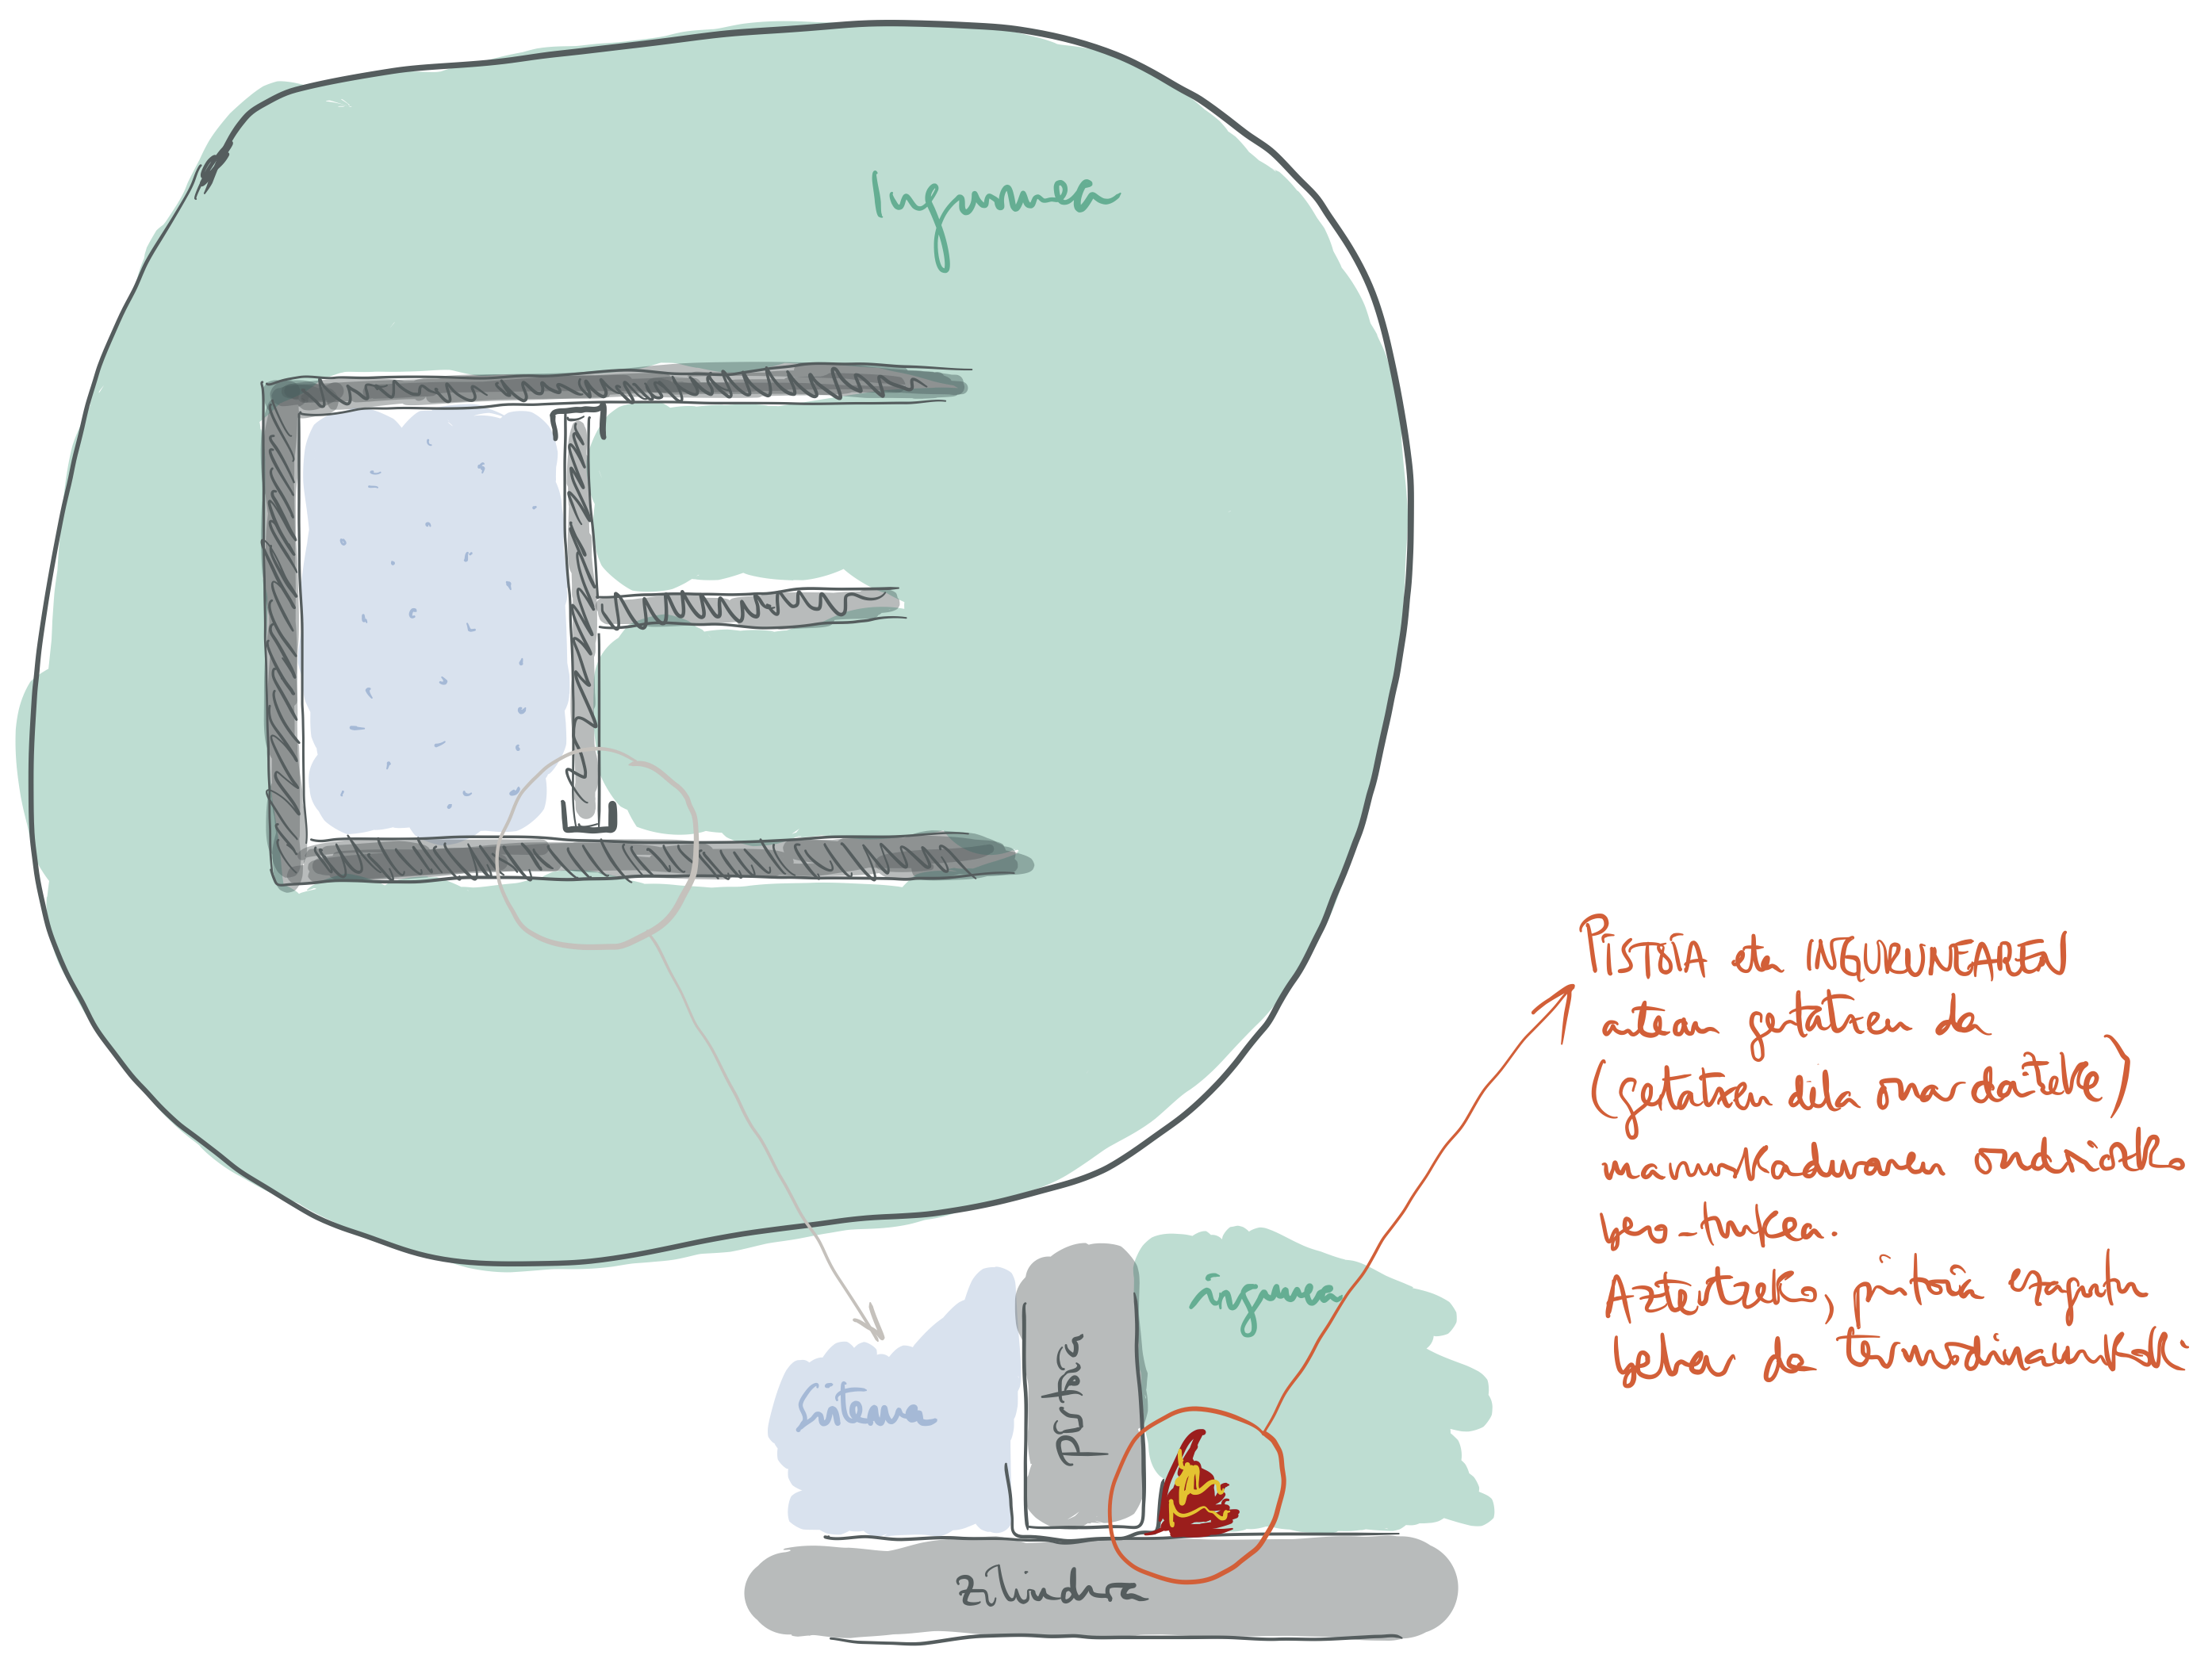 Ingurunea
PISTOIA eta INGURUNEAREN
artean gertatzen da
(gertatzen dela onar daiteke)
marruskaduraren ondorioko
bero-trukea.
Azterketako, pistoia apartu
behar da termodinamikatik.
ingurunea
Sistema
pistoia
Zilindroa